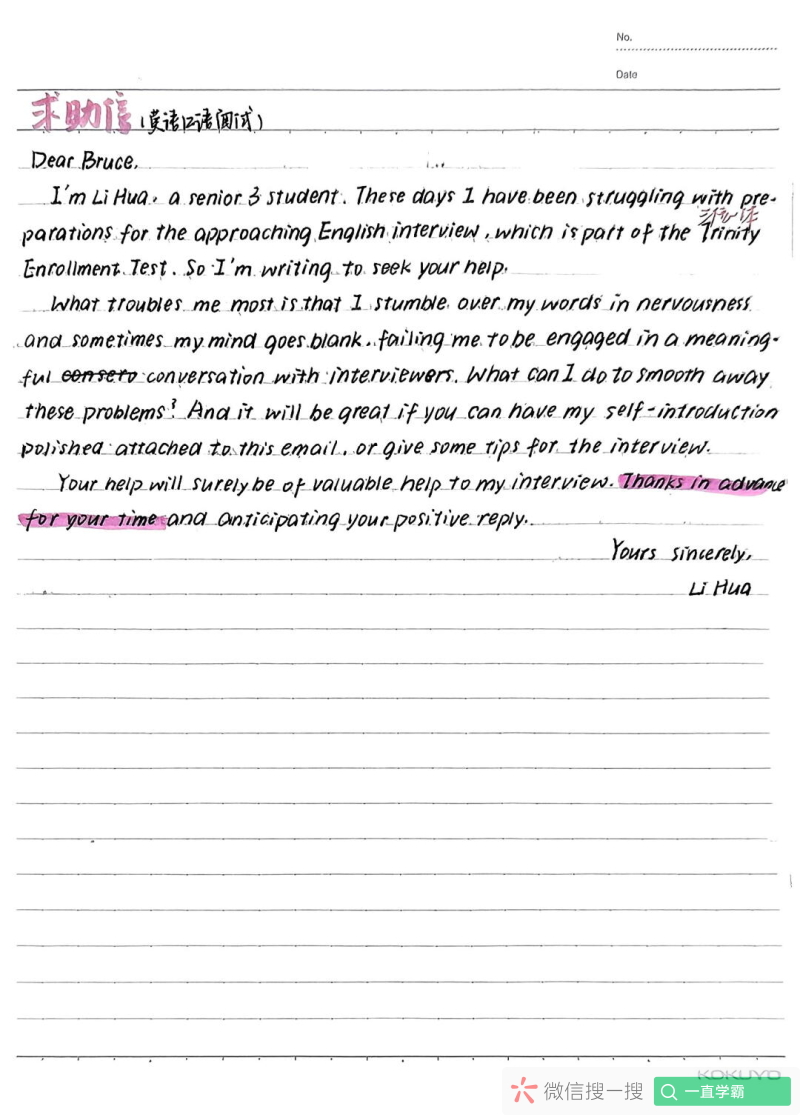 No.
Date
求助信(英语口语面试)
Dear Bruce,
I'm Li Hua, a senior 3 student. These days I have been struggling with pre-
三位一体
parations for the approaching English interview, which is part of the Trinity
Enrollment Test. So I'm writing to seek your help.
What troubles me most is that I stumble over my words in nervousness
and sometimes my mind goes blank, failing me to be engaged in a meaning-
ful conserv conversation with interviewers. What can I do to smooth away
these problems? And it will be great if you can have my self-introduction
polished attached to this email, or give some tips for the interview.
Your help will surely be of valuable help to my interview. Thanks in advance
for your time and anticipating your positive reply.
Yours sincerely,
Li Hua
KOKUYO
微信搜一搜
一直学霸